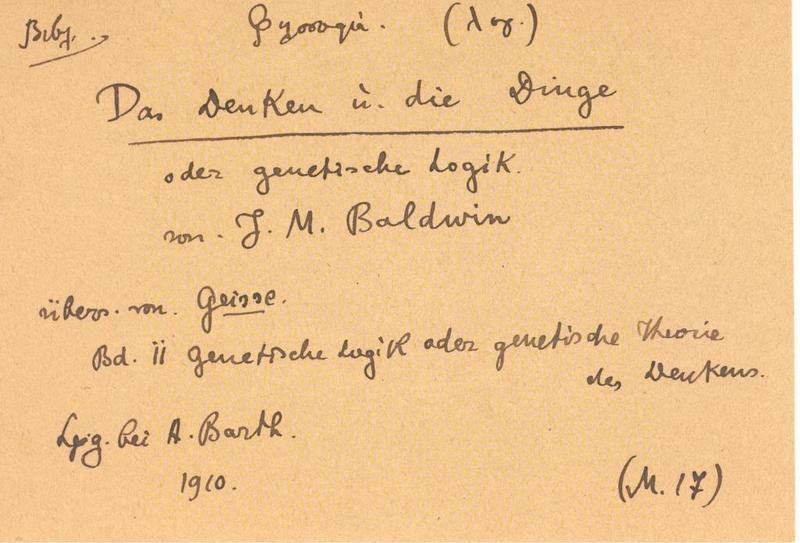 Bibl.
(λογ.)
Das Denken u. die Dinge
oder genetische Logik.
von. J. M. Baldwin
übers. von. Geisse.
Bd. II genetische Logik oder genetische Theorie
des Denkens.
Lpzg. bei A. Barth.
1910.
(M. 17)